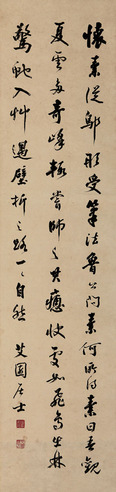 懷素從鄔彤受筆法魯公問素何所得素曰吾觀
夏雲多奇峰輒嘗師之其痛快處如飛鳥出林
驚蛇入艸遇壁折之路一一自然 艾園居士